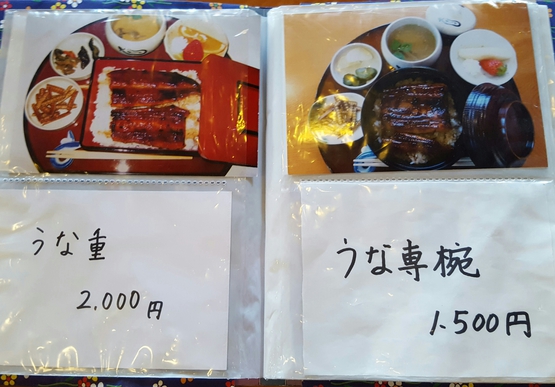 うな重
2,000円
うな専椀
1.500円